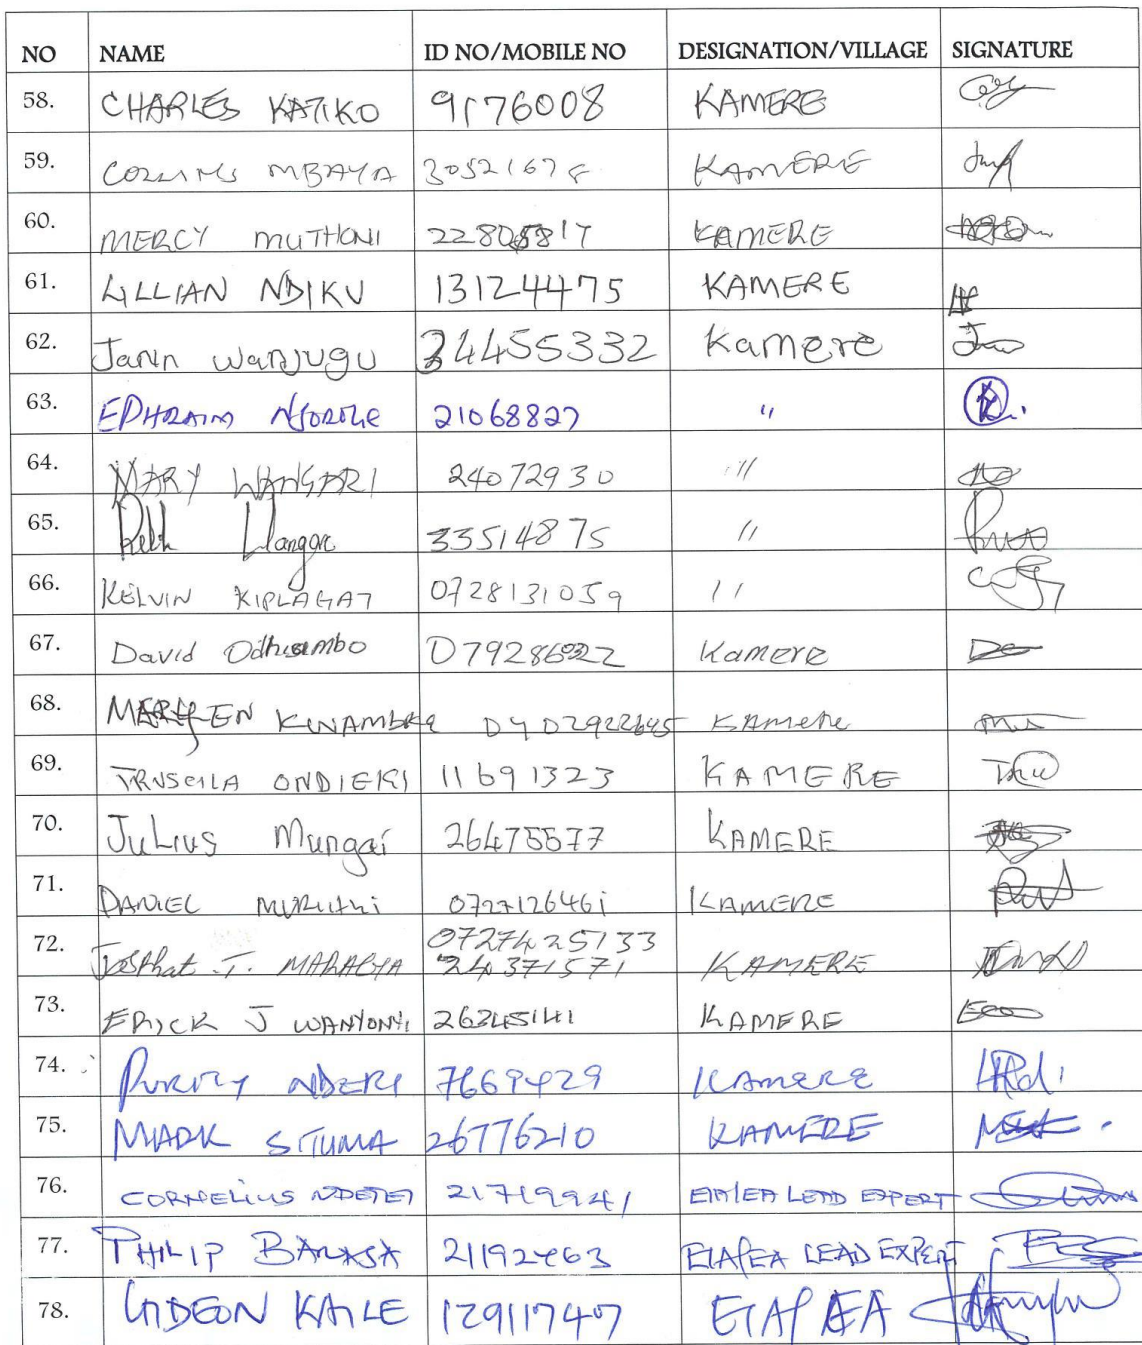 NO NAME ID NO/MOBILE NO DESIGNATION/VILLAGE SIGNATURE
58. CHARLES KATIKO 9176008 KAMERE
59. COLLINS MBAYA 30521678 KAMERE
60. MERCY MUTHONI KAMERE
61. LILLIAN NDIKU 13124475 KAMERE
62. Jann Wanjugu 34455332 Kamere
63. EPHRAIM NJOROGE 21068827 "
64. MARY WANGARI 24072930 "
65. 33514875 "
66. KELVIN KIPLAGAT 0728131059 "
67. David Odhiambo Kamere
68. KAMERE
69. TRUSCILA ONDIEKI 11691323 KAMERE
70. Julius Mungai 26475577 KAMERE
71. DANIEL MURIITHI 0727126461 KAMERE
72. Josphat T. 0727425133 KAMERE
24371571
73. ERICK J WANYONYI 26345141 KAMERE
74. PURITY NDERI 7669429 KAMERE
75. MARK SITUMA 26776210 KAMERE
76. CORNELIUS NDETEI 21719941 EIA/EA LEAD EXPERT
77. PHILIP BARASA 21192463 EIA/EA LEAD EXPERT
78. GIDEON KAILE 129117407 EIA/EA